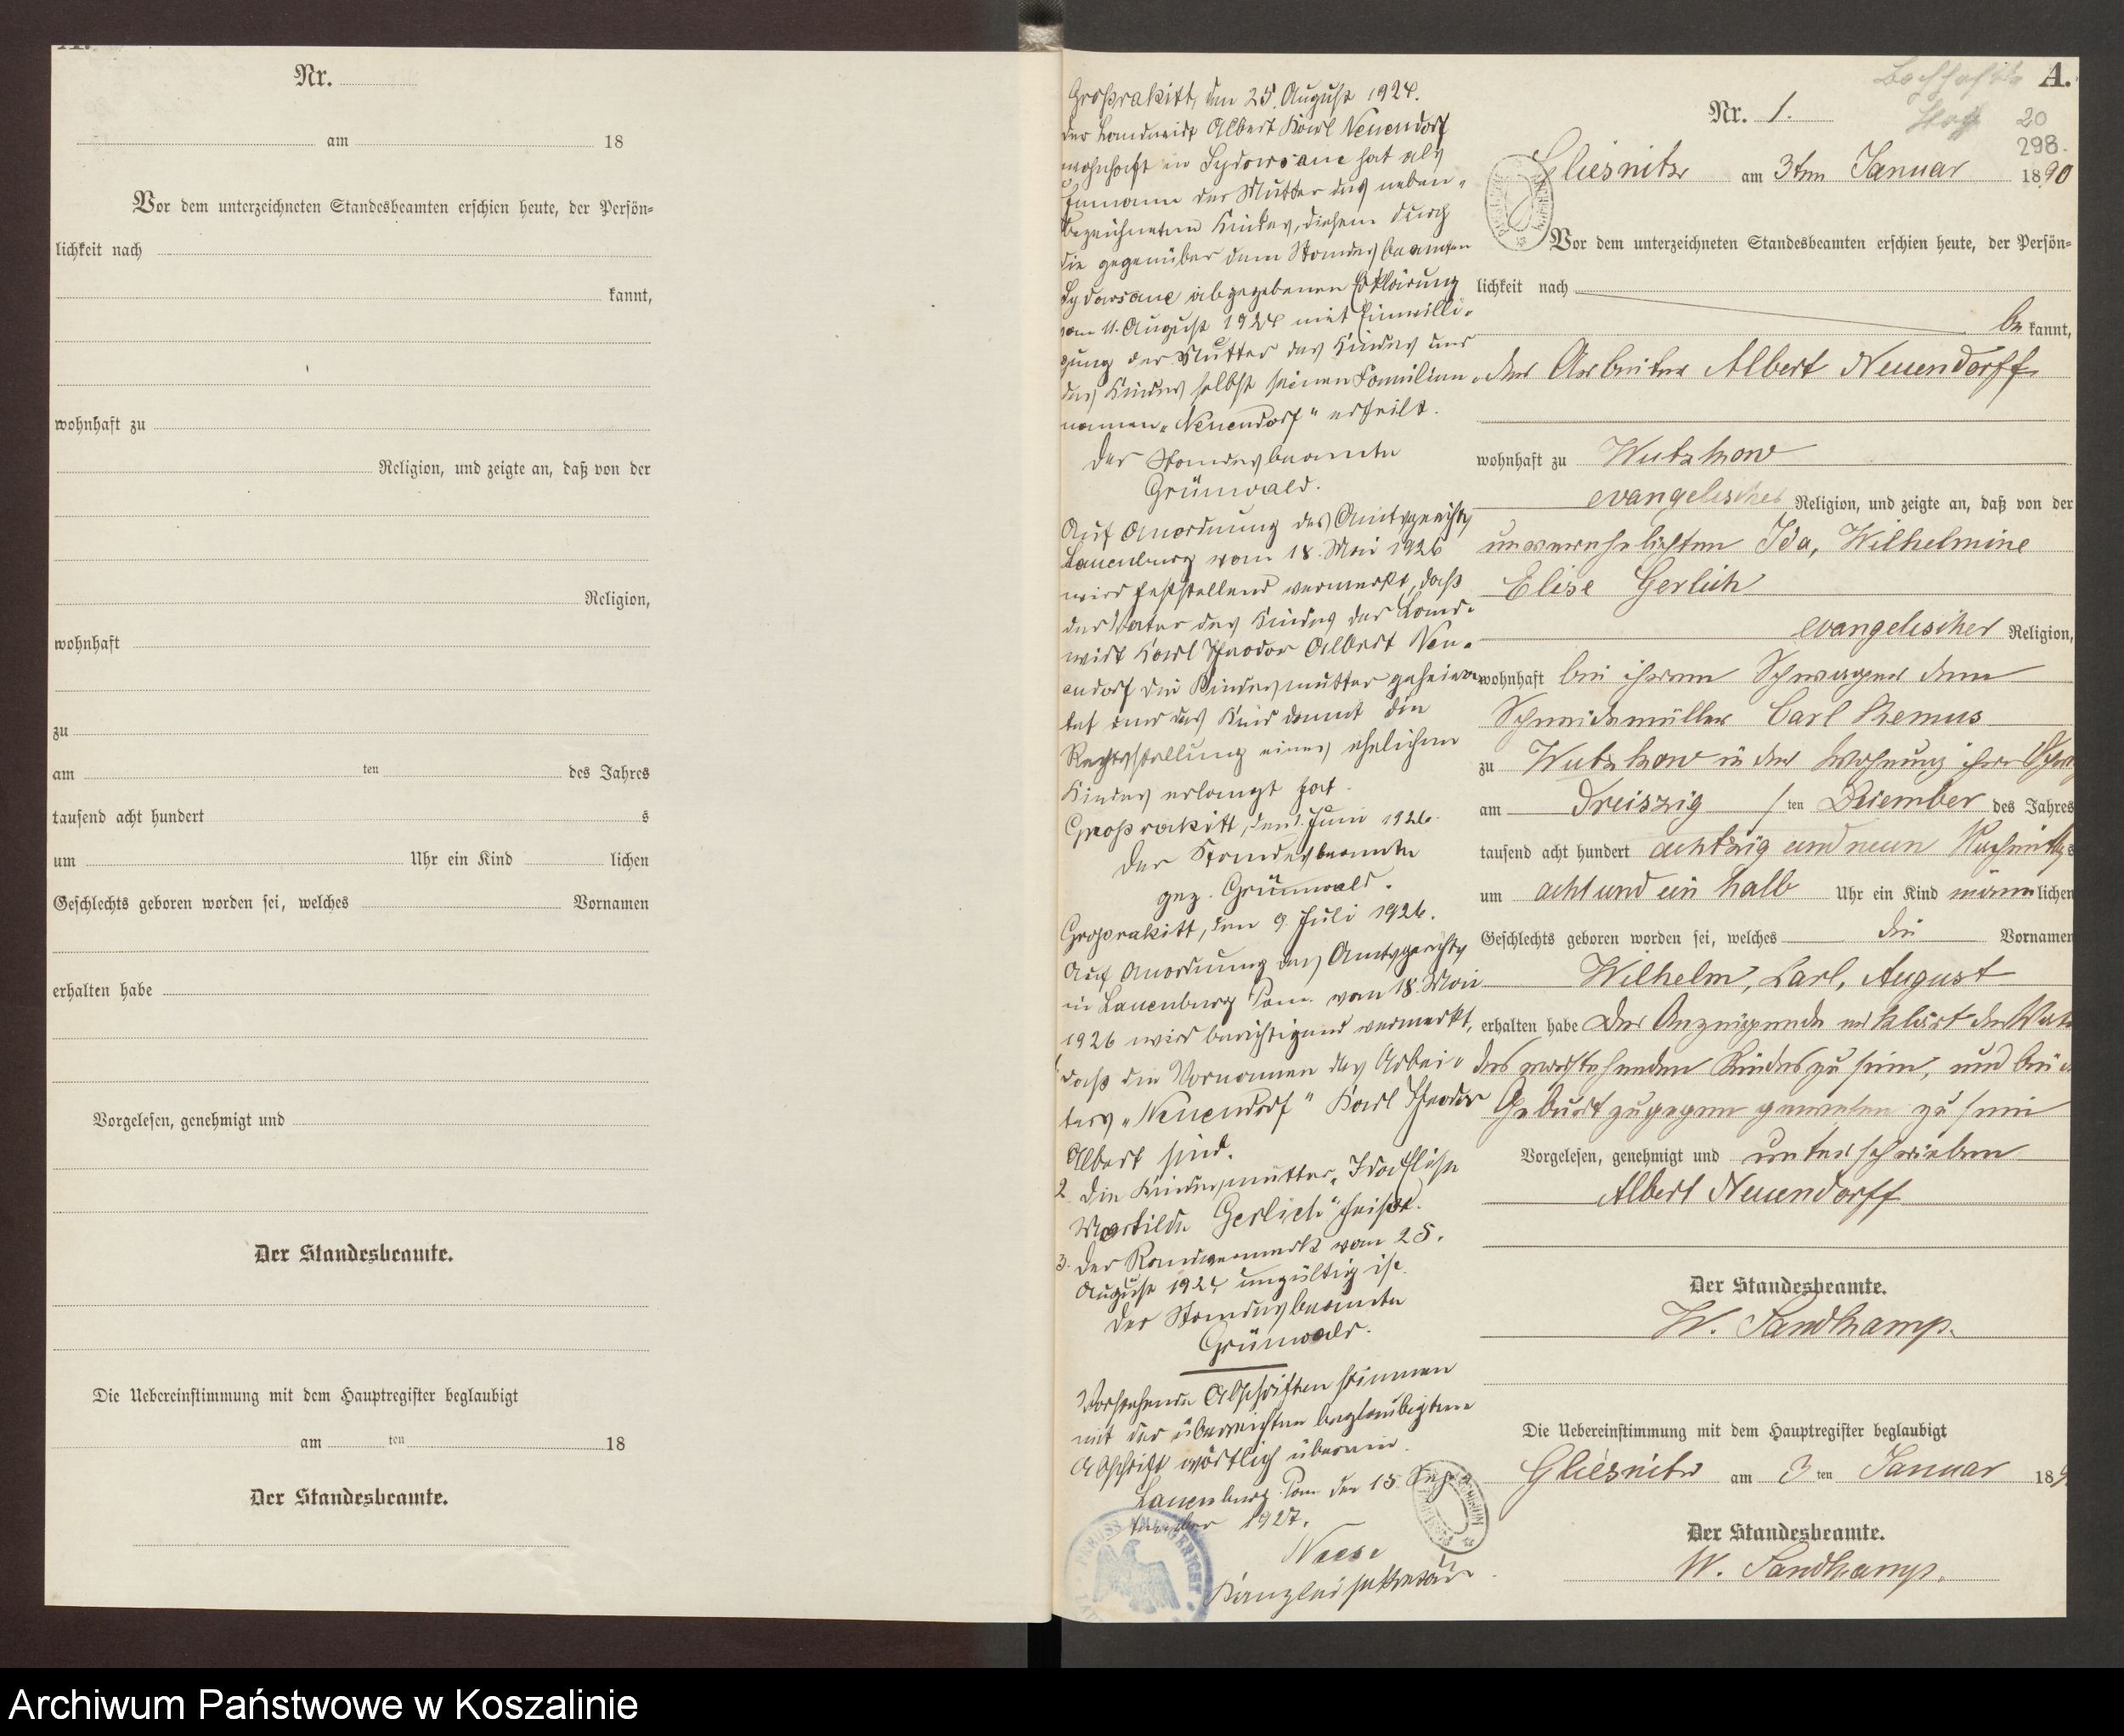 A.
Nr.
am 18
Vor dem unterzeichneten Standesbeamten erschien heute, der Persön=
lichkeit nach
kannt,
wohnhaft zu
Religion, und zeigte an, daß von der
Religion,
wohnhaft
zu
am ten des Jahres
tausend acht hundert s
um Uhr ein Kind lichen
Geschlechts geboren worden sei, welches Vornamen
erhalten habe
Vorgelesen, genehmigt und
Der Standesbeamte.
Die Uebereinstimmung mit dem Hauptregister beglaubigt
am ten 18
Der Standesbeamte.
Großrakitt, den 25. August 1924.
der Landwirt Albert Karl Neuendorf
wohnhaft in Lydowsane hat als
Ehemann der Mutter des neben-
bezeichneten Kindes, diesem durch
die gegenüber dem Standesbeamten
Lydowsane abgegebenen Erklärung
vom 11. August 1924 mit Einwilli-
gung der Mutter des Kindes und
des Kindes selbst seinen Familien-
namen „Neuendorf" erteilt.
Der Standesbeamte
Grünwald.
Auf Anordnung des Amtsgerichts
Lauenburg vom 18. Mai 1926
wird feststellend vermerkt, daß
der Vater des Kindes der Land-
wirt Karl Theodor Albert Neu-
endorf die Kindesmutter geheira-
tet und das Kind damit die
Rechtsstellung eines ehelichen
Kindes erlangt hat.
Großrakitt, den 1. Juni 1926.
Der Standesbeamte
gez. Grünwald.
Großrakitt, den 9. Juli 1926.
Auf Anordnung des Amtsgerichts
in Lauenburg Pom. vom 18. Mai
1926 wird berichtigend vermerkt,
daß die Vornamen des Arbei-
ters „Neuendorf" Karl Theodor
Albert sind.
2. Die Kindesmutter „Ida Elise
Martilde Gerlich" heißt.
3. Der Randvermerk vom 25.
August 1924 ungültig ist.
Der Standesbeamte
Grünwald.
Vorstehende Abschriften stimmen
mit der überreichten beglaubigten
Abschrift wörtlich überein.
Lauenburg Pom. den 15. Sep-
tember 1927.
Kanzleisekretär
A.
20
298.
Nr. 1.
Gliesnitz am 3ten Januar 1890
Vor dem unterzeichneten Standesbeamten erschien heute, der Persön=
lichkeit nach
be kannt,
der Arbeiter Albert Neuendorff
wohnhaft zu Wutzkow
evangelischer Religion, und zeigte an, daß von der
unverehelichten Ida, Wilhelmine
Elise Gerlich
evangelischer Religion,
wohnhaft bei ihrem Schwager dem
Schneidemüller Carl Remus
zu Wutzkow in der Wohnung ihres
am Dreiszig ten Dezember des Jahres
tausend acht hundert achtzig und neun Nachmittags
um acht und ein halb Uhr ein Kind männlichen
Geschlechts geboren worden sei, welches die Vornamen
Wilhelm, Carl, August
erhalten habe Der Anzeigende erklärt der Vater
des vorstehenden Kindes zu sein, und bei der
Geburt zugegen gewesen zu sein
Vorgelesen, genehmigt und unterschrieben
Albert Neuendorff
Der Standesbeamte.
W. Sandkamp.
Die Uebereinstimmung mit dem Hauptregister beglaubigt
Gliesnitz am 3 ten Januar 189
Der Standesbeamte.
W. Sandkamp.
Archiwum Państwowe w Koszalinie